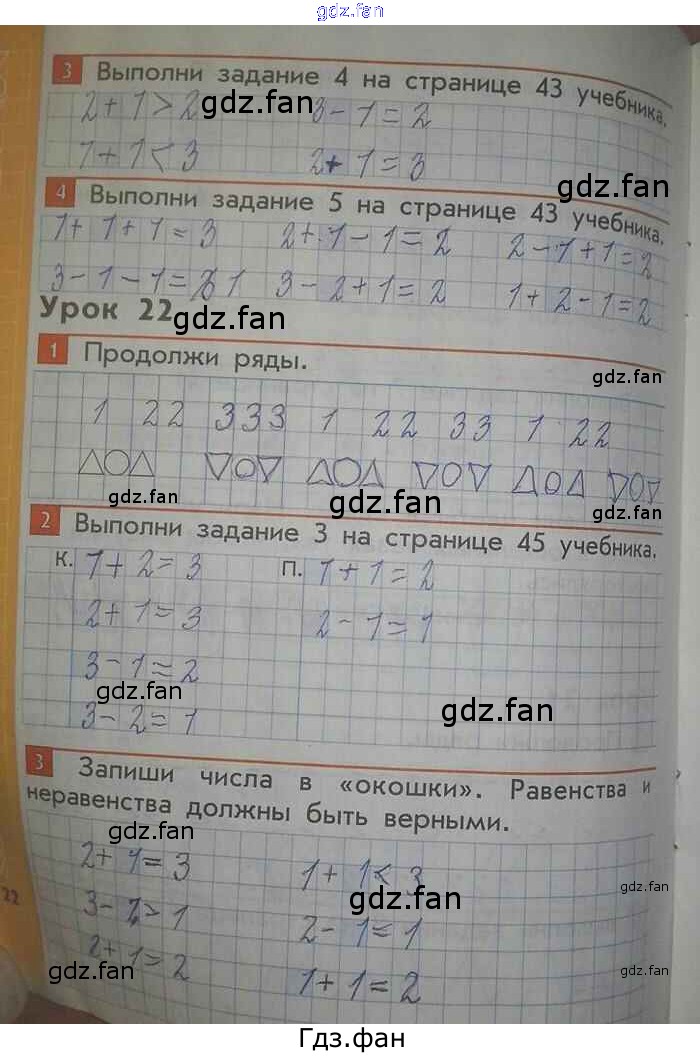 gdz.fan
3 Выполни задание 4 на странице 43 учебника.
2+1>2 3-1=2
gdz.fan gdz.fan
1+1<3 2+1=3
gdz.fan
4 Выполни задание 5 на странице 43 учебника.
1+1+1=3 2+1-1=2 2-1+1=2
3-1-1=1 3-2+1=2 1+2-1=2
Урок 22
gdz.fan
1 Продолжи ряды.
gdz.fan
1 22 333 1 22 33 1 22
gdz.fan gdz.fan gdz.fan
2 Выполни задание 3 на странице 45 учебника.
К. 1+2=3 П. 1+1=2
2+1=3 2-1=1
3-1=2
gdz.fan gdz.fan
3-2=1
3 Запиши числа в «окошки». Равенства и
неравенства должны быть верными.
gdz.fan
2+1=3 1+1<3
gdz.fan
3-1>1 2-1=1
22
2+1=2
gdz.fan gdz.fan
1+1=2
Гдз.фан